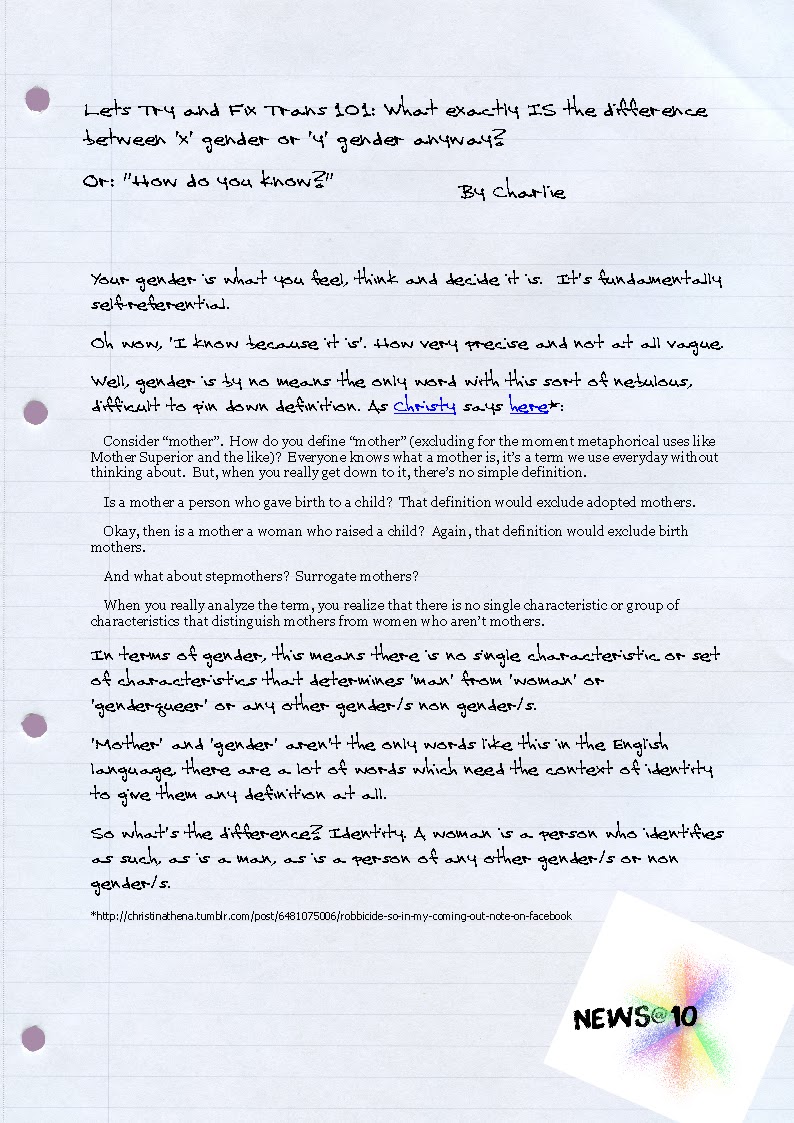 Lets Try and Fix Trans 101: What exactly IS the difference
between 'x' gender or 'y' gender anyway?
Or: "How do you know?"
By Charlie
Your gender is what you feel, think and decide it is. It's fundamentally
self-referential.
Oh wow, 'I know because it is'. How very precise and not at all vague.
Well, gender is by no means the only word with this sort of nebulous,
difficult to pin down definition. As Christy says here*:
Consider “mother”. How do you define “mother” (excluding for the moment metaphorical uses like
Mother Superior and the like)? Everyone knows what a mother is, it’s a term we use everyday without
thinking about. But, when you really get down to it, there’s no simple definition.
Is a mother a person who gave birth to a child? That definition would exclude adopted mothers.
Okay, then is a mother a woman who raised a child? Again, that definition would exclude birth
mothers.
And what about stepmothers? Surrogate mothers?
When you really analyze the term, you realize that there is no single characteristic or group of
characteristics that distinguish mothers from women who aren’t mothers.
In terms of gender, this means there is no single characteristic or set
of characteristics that determines 'man' from 'woman' or
'genderqueer' or any other gender/s non gender/s.
'Mother' and 'gender' aren't the only words like this in the English
language, there are a lot of words which need the context of identity
to give them any definition at all.
So what's the difference? Identity. A woman is a person who identifies
as such, as is a man, as is a person of any other gender/s or non
gender/s.
*http://christinathena.tumblr.com/post/6481075006/robbicide-so-in-my-coming-out-note-on-facebook
NEWS@10